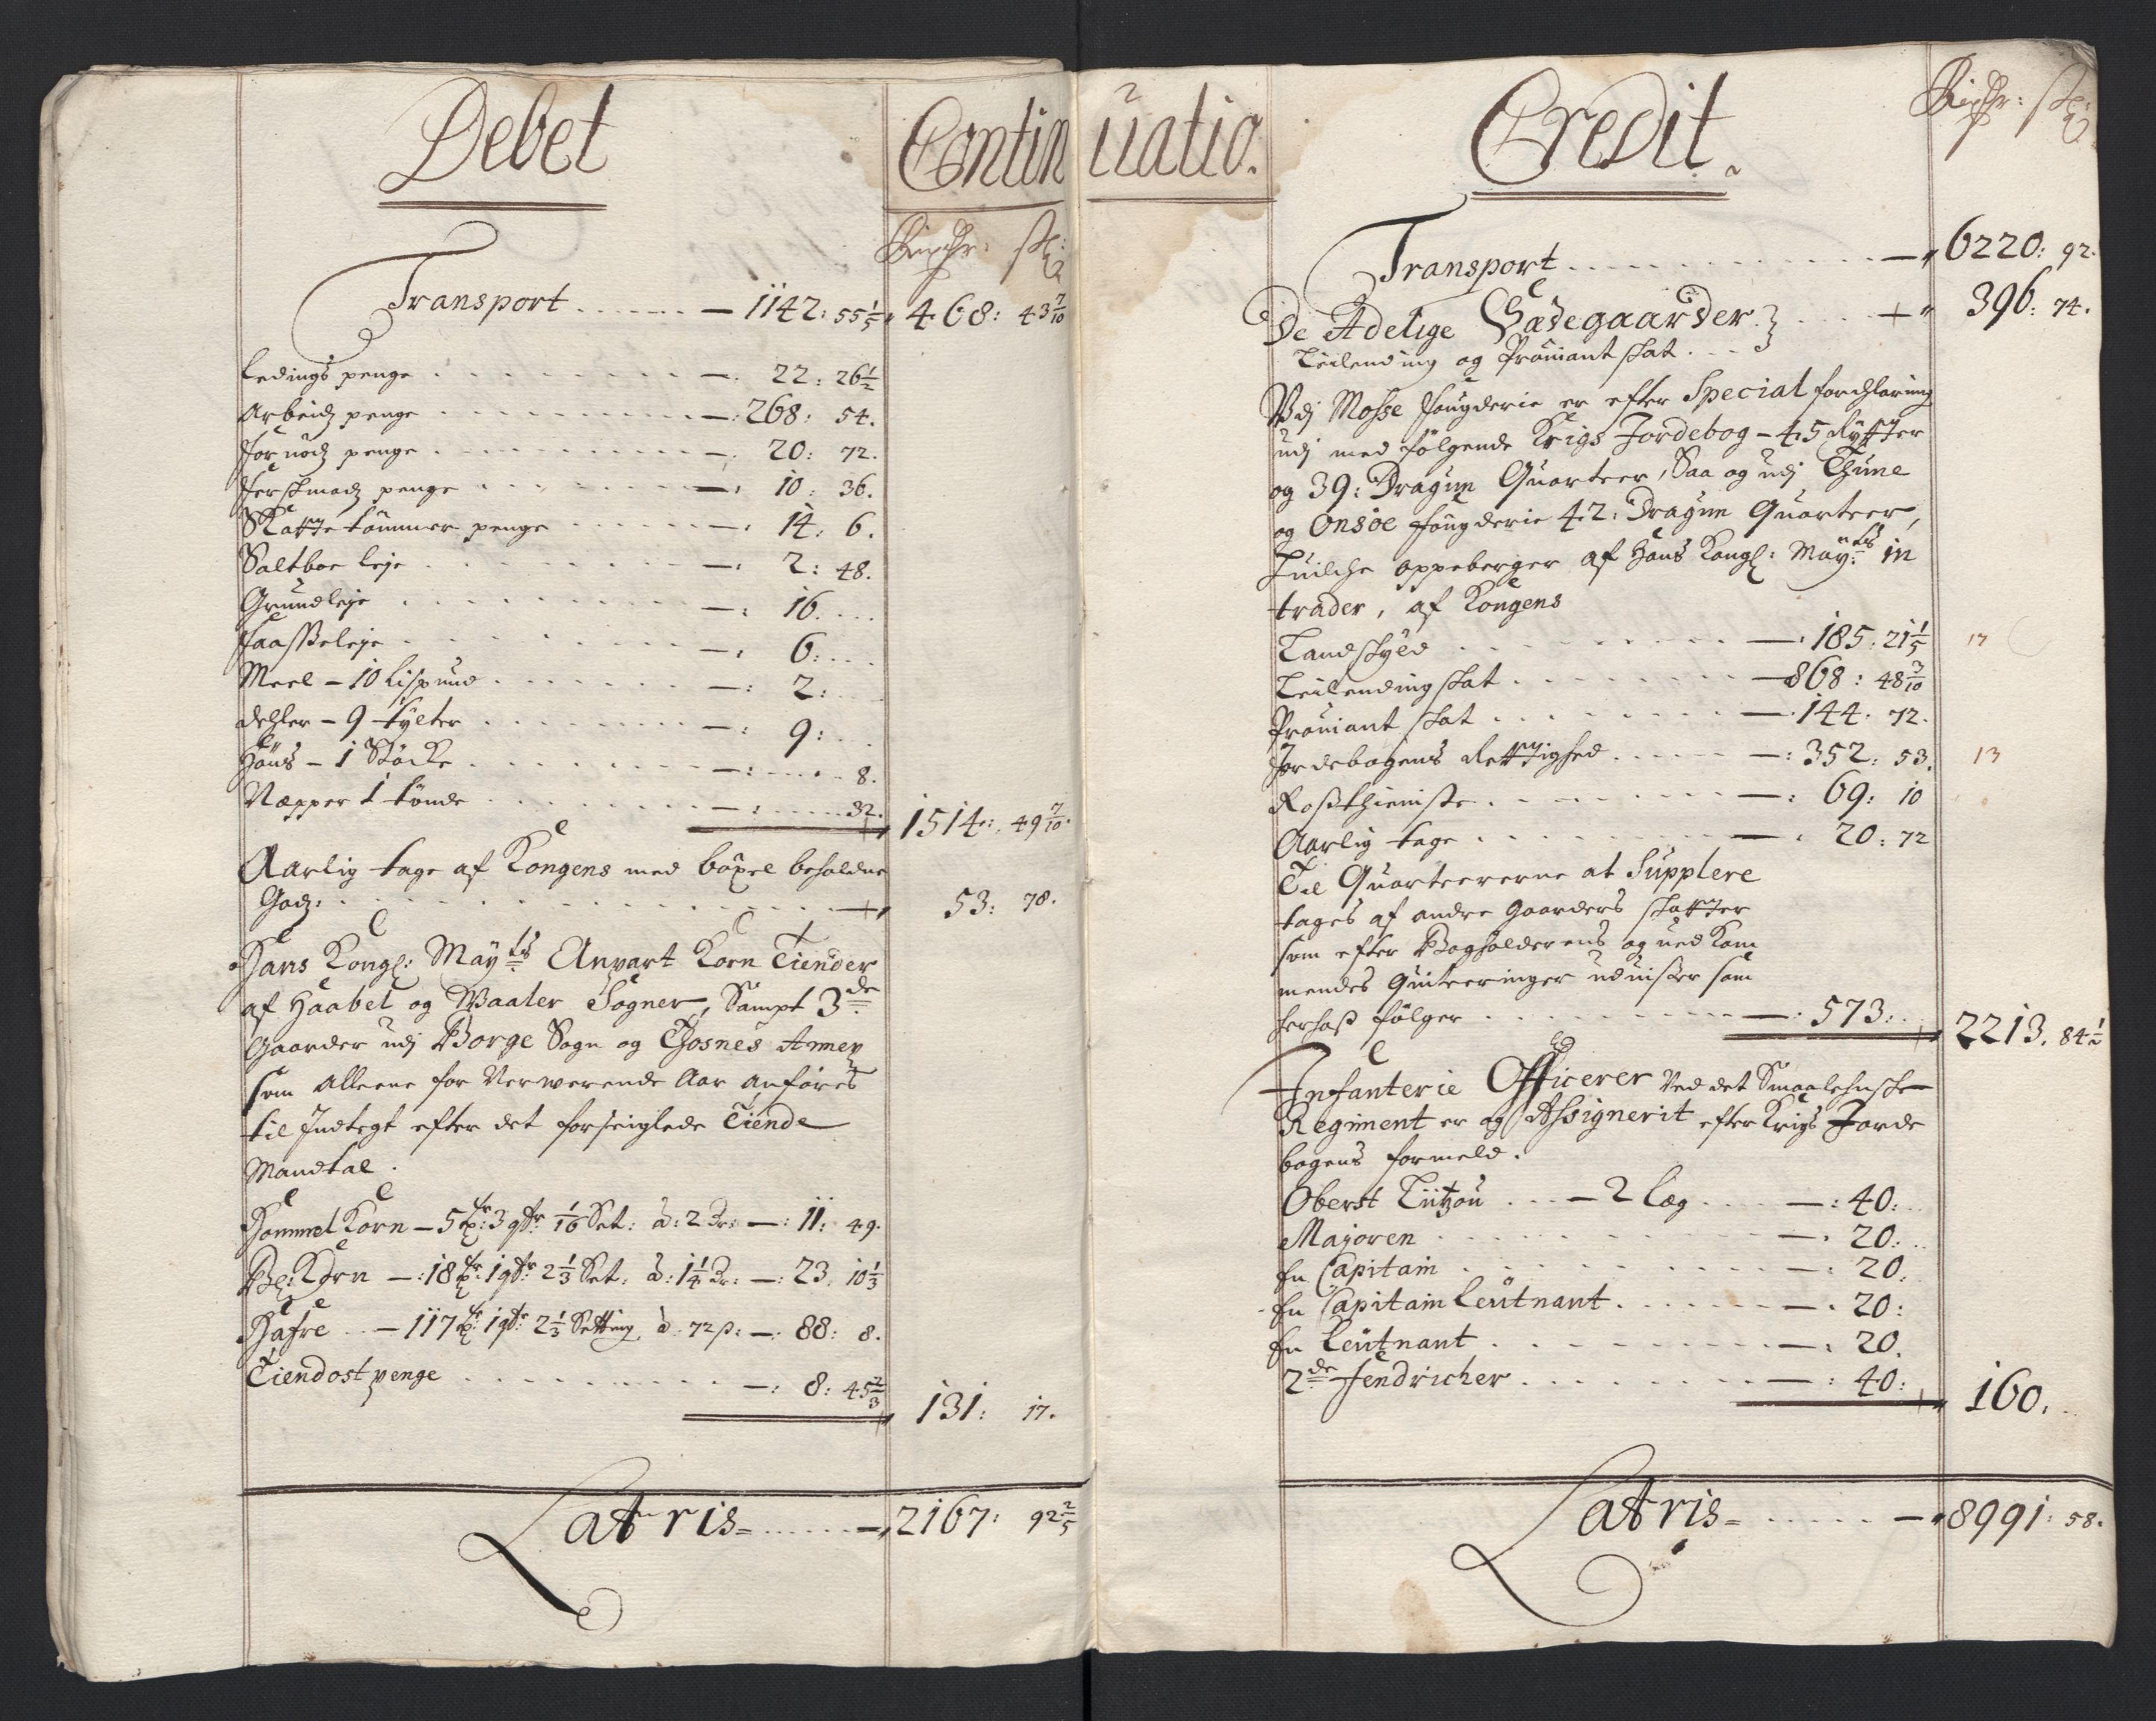 Debet
Continuatio.
Rixdr: ß:
Transport . . . . . . — 1142: 55 1/5 468: 43 7/10
Ledings penge . . . . —. 22: 26 1/2
Arbeidz penge . . . . —: 268: 54.
Fornödz penge . . . . —. 20: 72.
Ferskmadz penge . . . . —: 10: 36.
Skattetömmer penge . . . . —: 14: 6.
Saltboe leje . . . . —: 2: 48.
Grundleje . . . . —: 16. . . .
Faaßeleje . . . . —: 6: . . .
Meel — 10 Lispund . . . . —: 2: . . .
dehler — 9 tylter . . . . —: 9: . . .
Höns — 1 Stöcke . . . . —: . . . . 8.
Næpper 1 tönde . . . . —: . . . . 32. 1514: 49 7/10.
Aarlig tage af Kongens med böxel beholdne
Godz: . . . . . . 53: 78.
Hans Kongl: Mayts Anpart Korn Tiender
af Haabel og Waaler Sogner, Sampt 3de
Gaarder udj Borge Sogn og Thosnes Annex
som alleene for Nerwerende Aar anföres
til Indtegt efter det forseiglede Tiende
Mandtal.
Hommel Korn — 5 tr: 3 qtr: 1/16 Set: à: 2 Dr: —: 11: 49.
Bl: Korn —: 18 tr: 1 qtr: 2 1/3 Set: à: 1 1/4 Dr: —: 23. 10 1/3
Hafre — 117 tr: 1 qtr: 2 1/3 Setting à: 72 ß: —: 88: 8.
Tiendost penge . . . . —: 8: 45 2/3 131: 17.
Latris = . . . . . . — 2167: 92 2/5
Credit.
Rixdr: ß:
Transport . . . . . . — 6220: 92.
De Adelige Sædegaarder } . . . . 396: 74.
Leilending og Proviant skat . . .
Udj Mosse Fougderie er efter Special forklaring
udj med fölgende Krigs Jordebog — 45 Rytter
og 39: Dragun Quarteer, Saa og udj Thune
og Onsöe Fougderie 42: Dragun Quarteer,
huilche oppeberger af Hans Kongl: Mayts in
trader, af Kongens
Landskyld . . . . —: 185. 21 1/5 17
Leilending skat . . . . — 868: 48 7/10
Proviant skat . . . . —. 144. 72.
Jordebogens Rettighed . . . . —: 352: 53. 13
Roßthieniste . . . . —: 69: 10
Aarlig tage . . . . —. 20: 72
Til Quarteererne at Supplere
tages af andre Gaarders skatter
som efter Bogholderens og ved Kom
mendes Quiteeringer udviser som
herhoß fölger . . . . —: 573: . . 2213. 84 1/2
Infanterie Officerer Ved det Smaalehnske
Regiment er og Assignerit efter Krigs Jorde
bogens formeld.
Oberst Lützou . . . — 2 læg . . . . —: 40: . .
Majoren . . . . —. 20: . .
En Capitain . . . . —: 20.
En Capitain Leutnant . . . . —. 20:
En Leutnant . . . . —: 20.
2de Fendricher . . . . —: 40: 160. . .
Latris = . . . . . — 8991: 58.